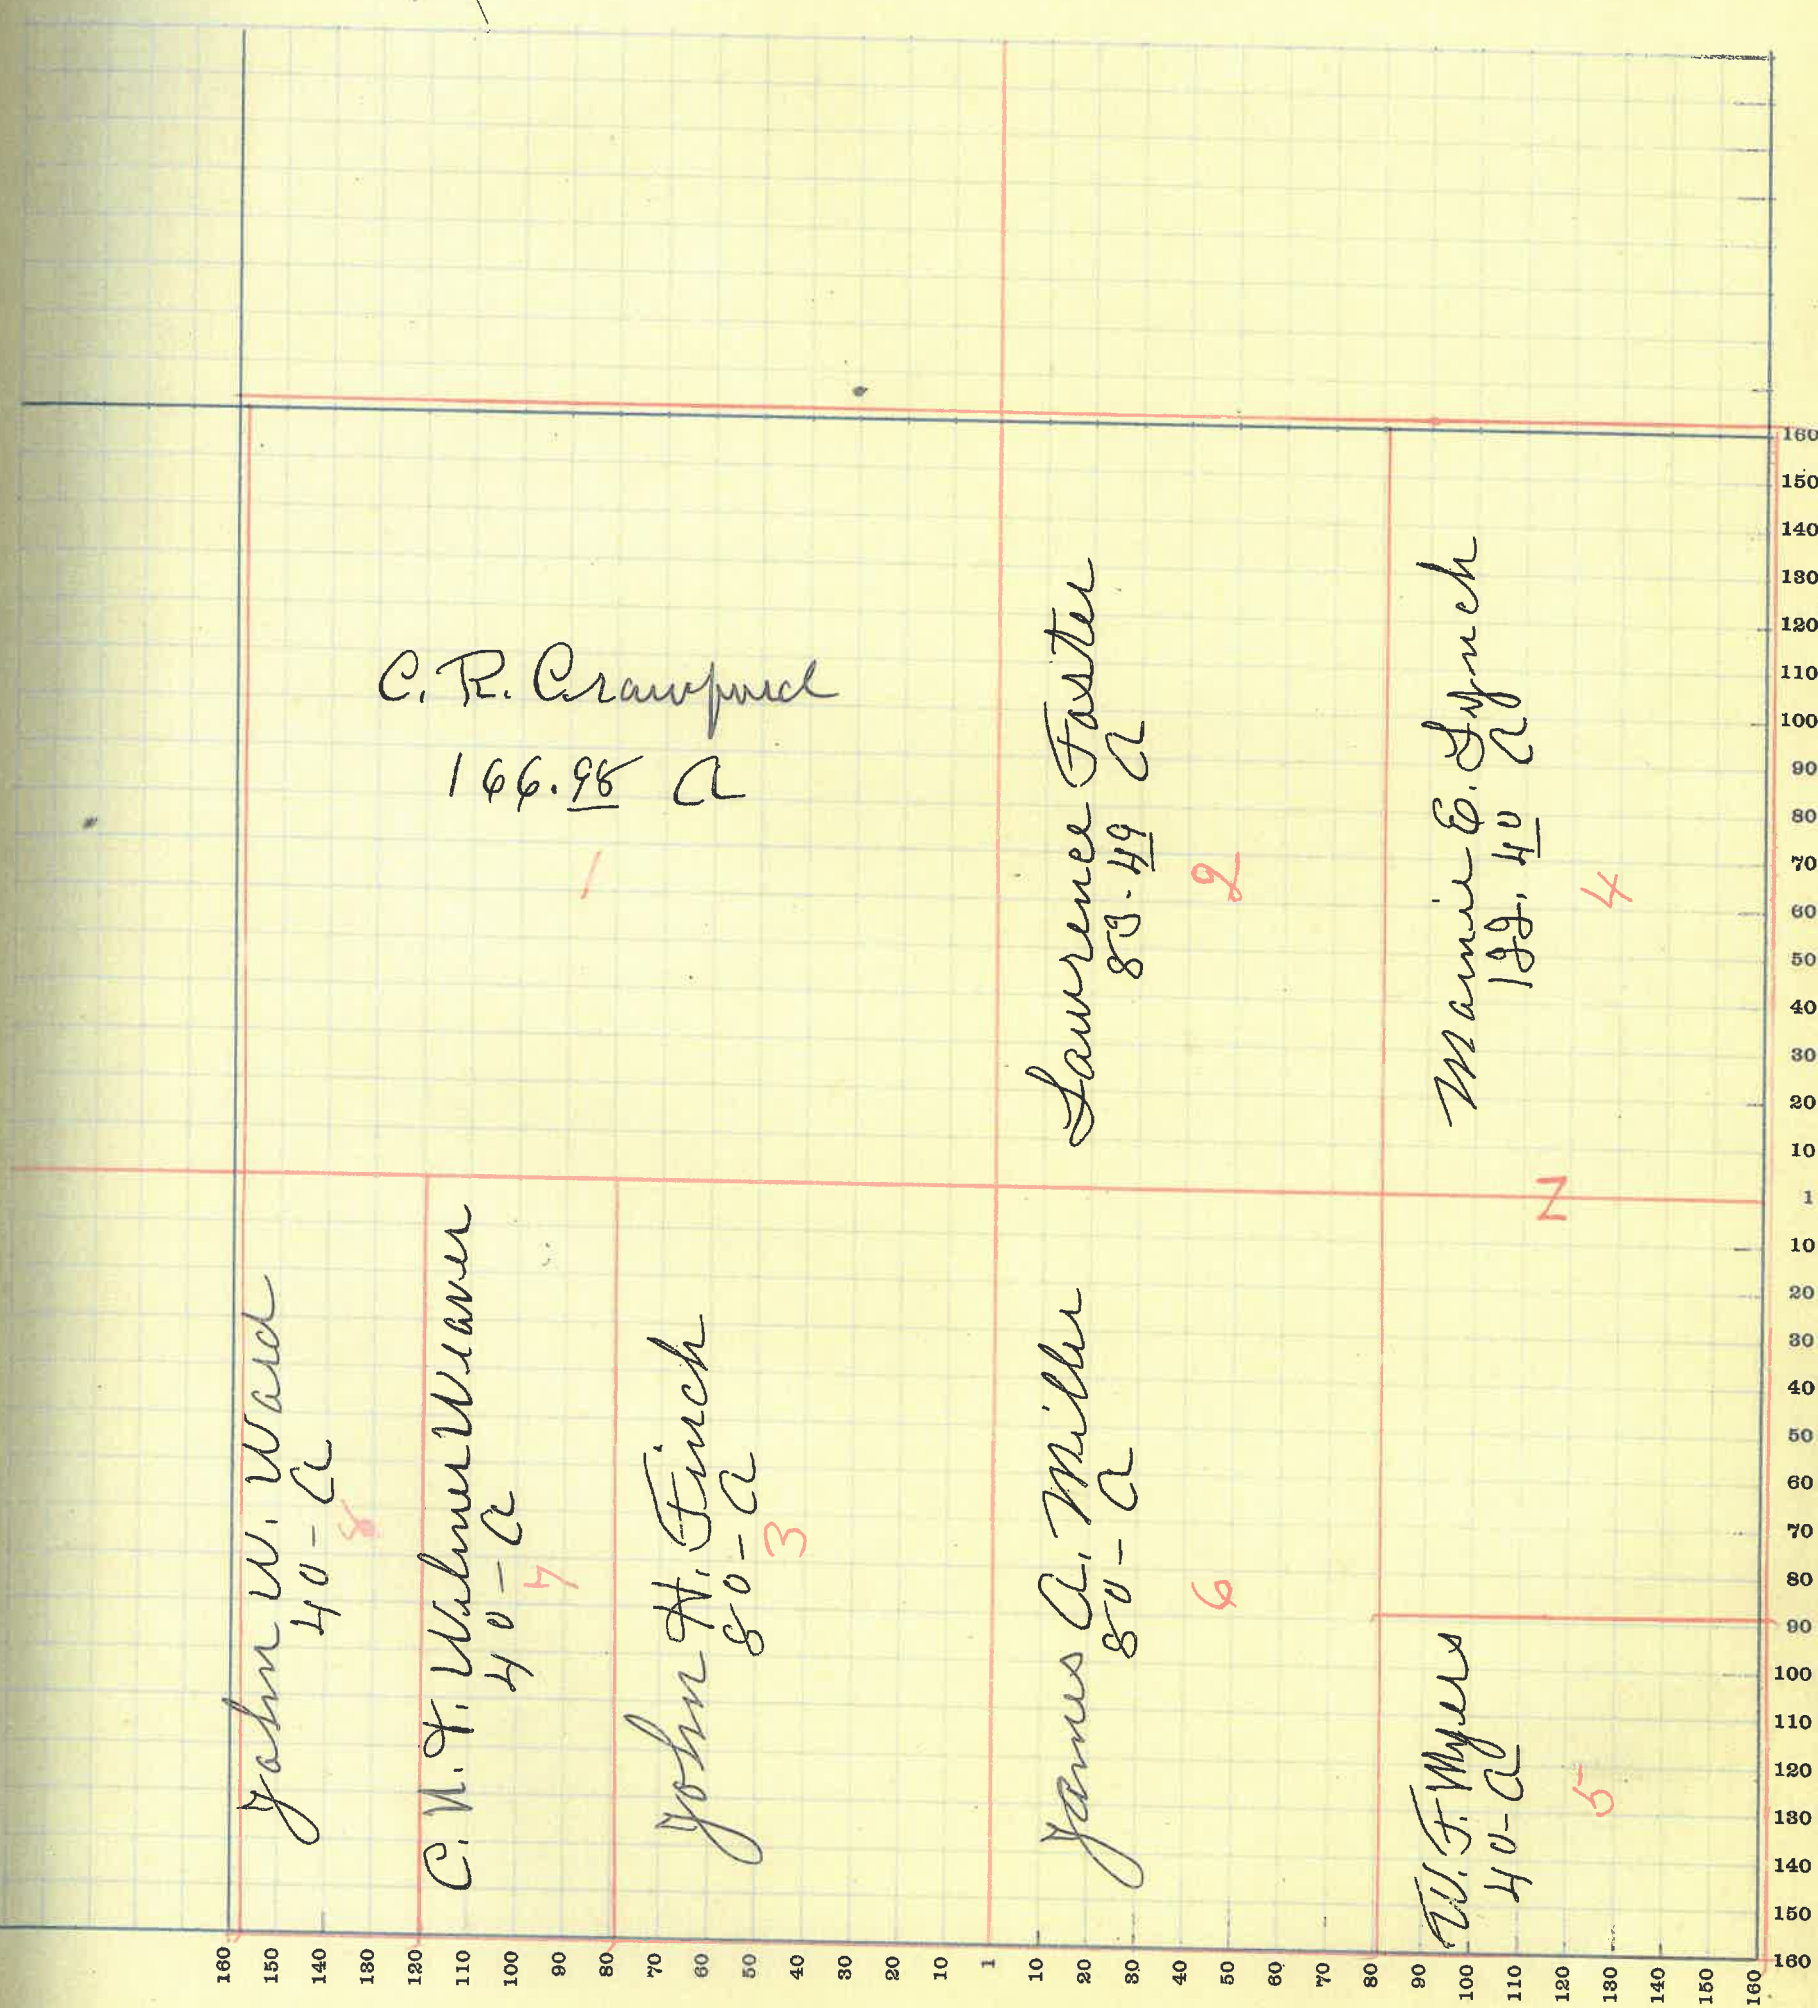 C. R. Crawford
166.98 A
1
Lawrence Foster
83.49 A
2
Mamie E. Lynch
122.40 A
4
Z
John W. Ward
40 - A
8
C. N. T. Wilmer Weaver
40 - A
7
John H. Finch
80 - A
3
James A. Miller
80 - A
6
W. F. Myers
40 - A
5
160
150
140
130
120
110
100
90
80
70
60
50
40
30
20
10
1
10
20
30
40
50
60
70
80
90
100
110
120
130
140
150
160
160 150 140 130 120 110 100 90 80 70 60 50 40 30 20 10 1 10 20 30 40 50 60 70 80 90 100 110 120 130 140 150 160